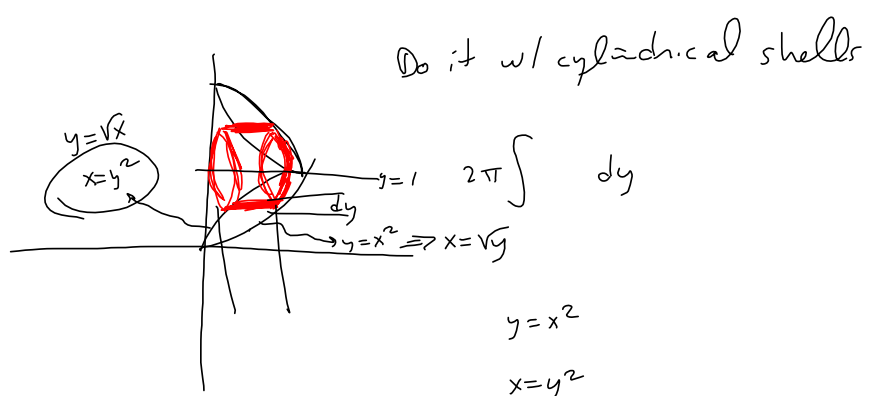 Do it w/ cylindrical shells
y=√x
x=y²
y=1
2π∫ dy
dy
y=x² ⇒ x=√y
y=x²
x=y²